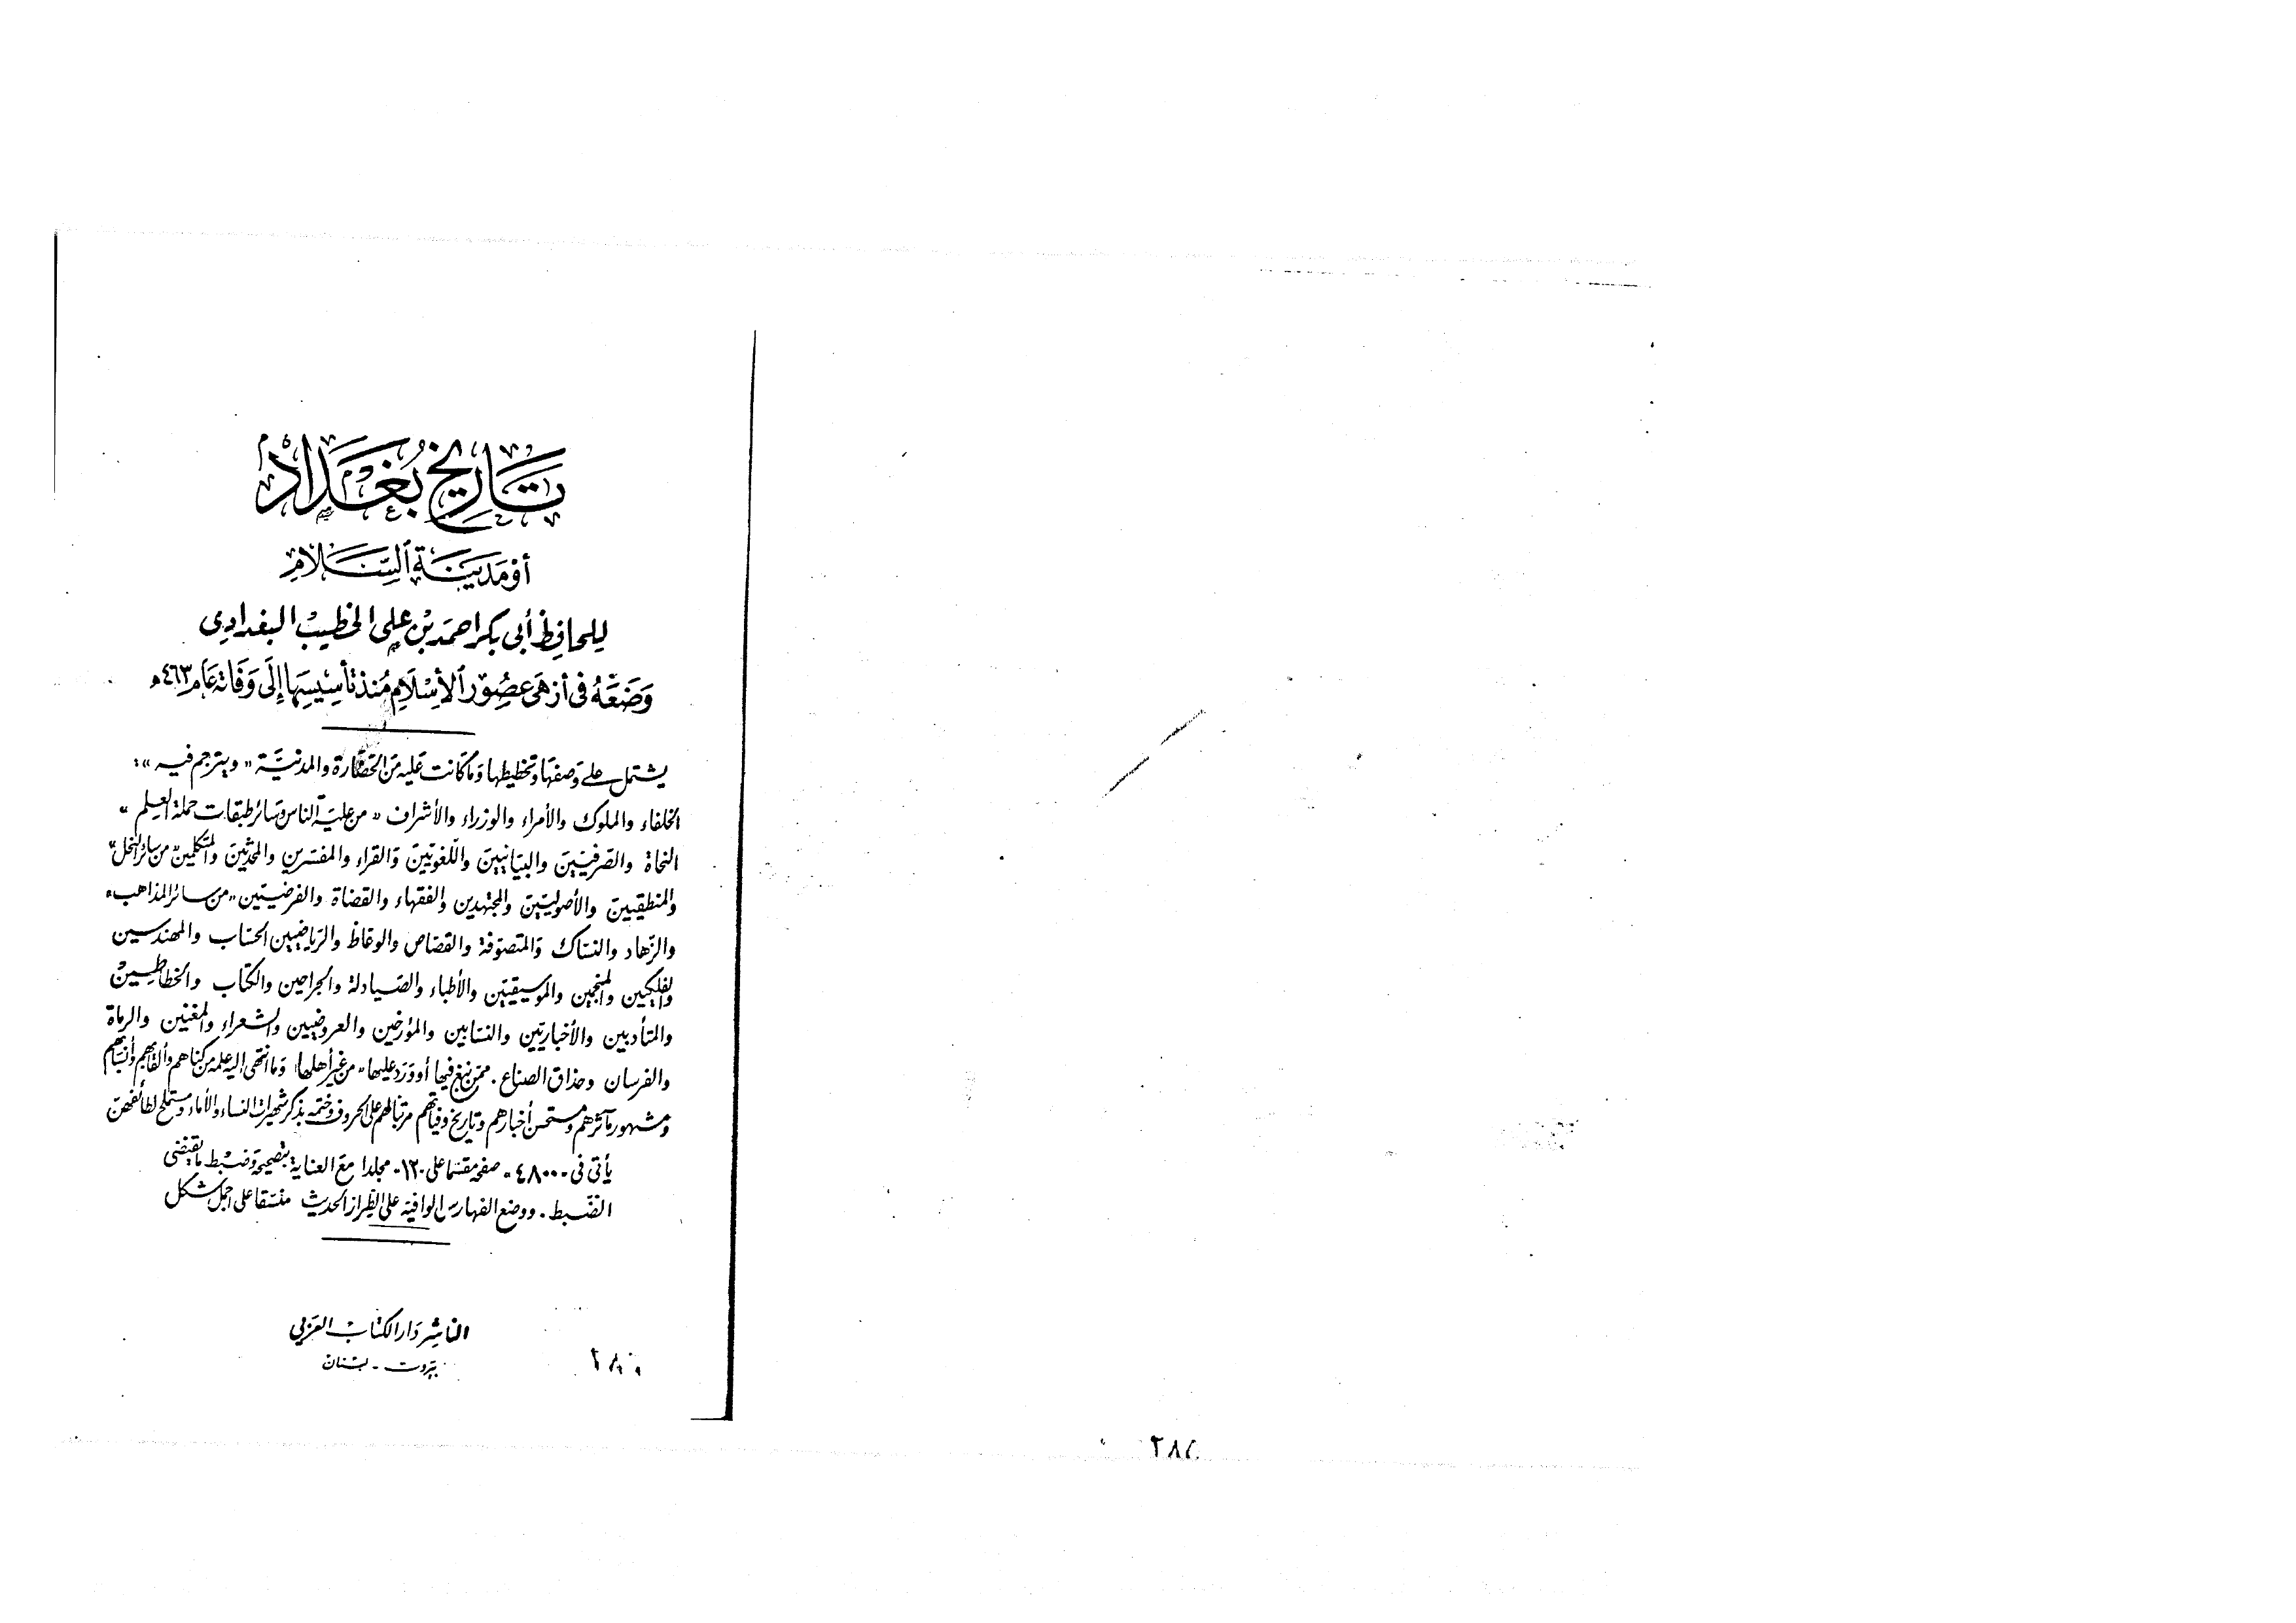 تَارِيخ بُغَدَاد
أَوْ مَدِيْنَة السَّلَام
لِلحافِظ أبي بكر احمَد بْن علي الخطيبْ البغدادِي
وَضَعَهُ في أزهَى عصُوْر الأِسْلَامِ مُنذ تأسِيسِهَا إلَى وَفَاته عَام ٤٦٣ھ
يشتمل على وَصفهَا وتخطيطها وَمَا كَانت عَليه مَن الحضَارة والمدنيَّة «ويترجم فيه»:
الخلفاء والملوك والأمراء والوزراء والأشراف «من عليَة الناس وسَائر طبقات حملة العِلم»
النحاة والصَرفيَيَن والبيَانييَن واللّغويَين وَالقراء والمفسَرين والمحدثيَن والمتكلمين من سائر النحل"
والمنطقييَن والأصولييَن والمجتهدين والفقهاء والقضاة والفرضيَين "من سائر المذاهب"
والزهاد والنسَاك وَالمتصوّفة والقصَاص والوعَاظ والريَاضيين الحسَاب والمهندسين
والفلكيين والمنجمين والموسيقيَين والأطباء والصَيادلة والجراحين والكتاب والخطاطيينْ
والمتأدبين والأخباريَين والنسَابين والمؤرخين والعروضيين والشعراء والمغنين والرماة
والفرسان وحذاق الصناع. ممَن نبغ فيها أو وَرَد عليها "من غير أهلها" وَما انتهى اليه علمه من كناهم وألقابهم وأنسَابهم
ومشهور مآثرهم ومستحسن أخبارهم وتاريخ وفياتهم مرتبا لهم على الحروف وختمه بذكر شهيرات النساء والأماء ومستملح لطائفهن
يأتى في ٤٨٠٠٠ صفحه مقسَما على ١٢٠ مجلدا مَع العناية بتصحيحه وَضبْط مَا يقتضى
الضَبط. ووضع الفهارس الوافية على الطراز الحديث منسَقا على اجمل شكل
الناشِر دَار الكتابْ العَرَبي
بَيروت - لبْنان
٢٨
٢٨